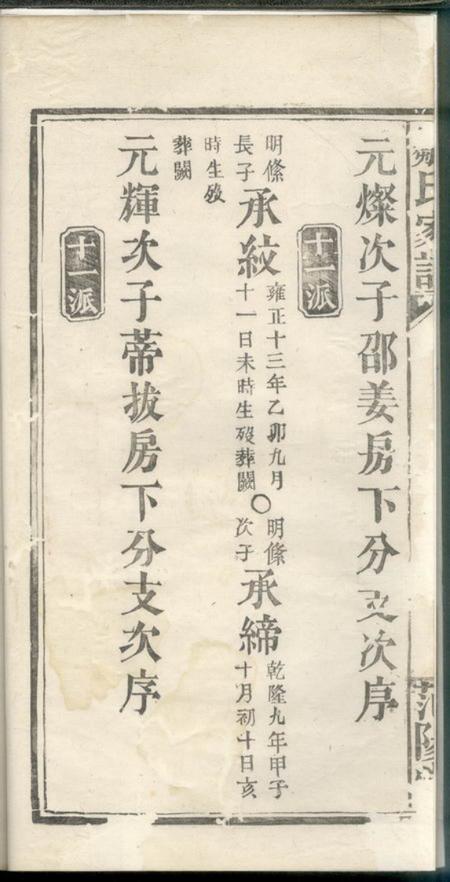 氏家譜
元燦次子邵姜房下分支次序
十一派
明絛長子承紋雍正十三年乙卯九月十一日未時生殁葬闕〇明絛次子承締乾隆九年甲子十月初十日亥
時生殁葬闕
元輝次子蒂拔房下分支次序
十一派